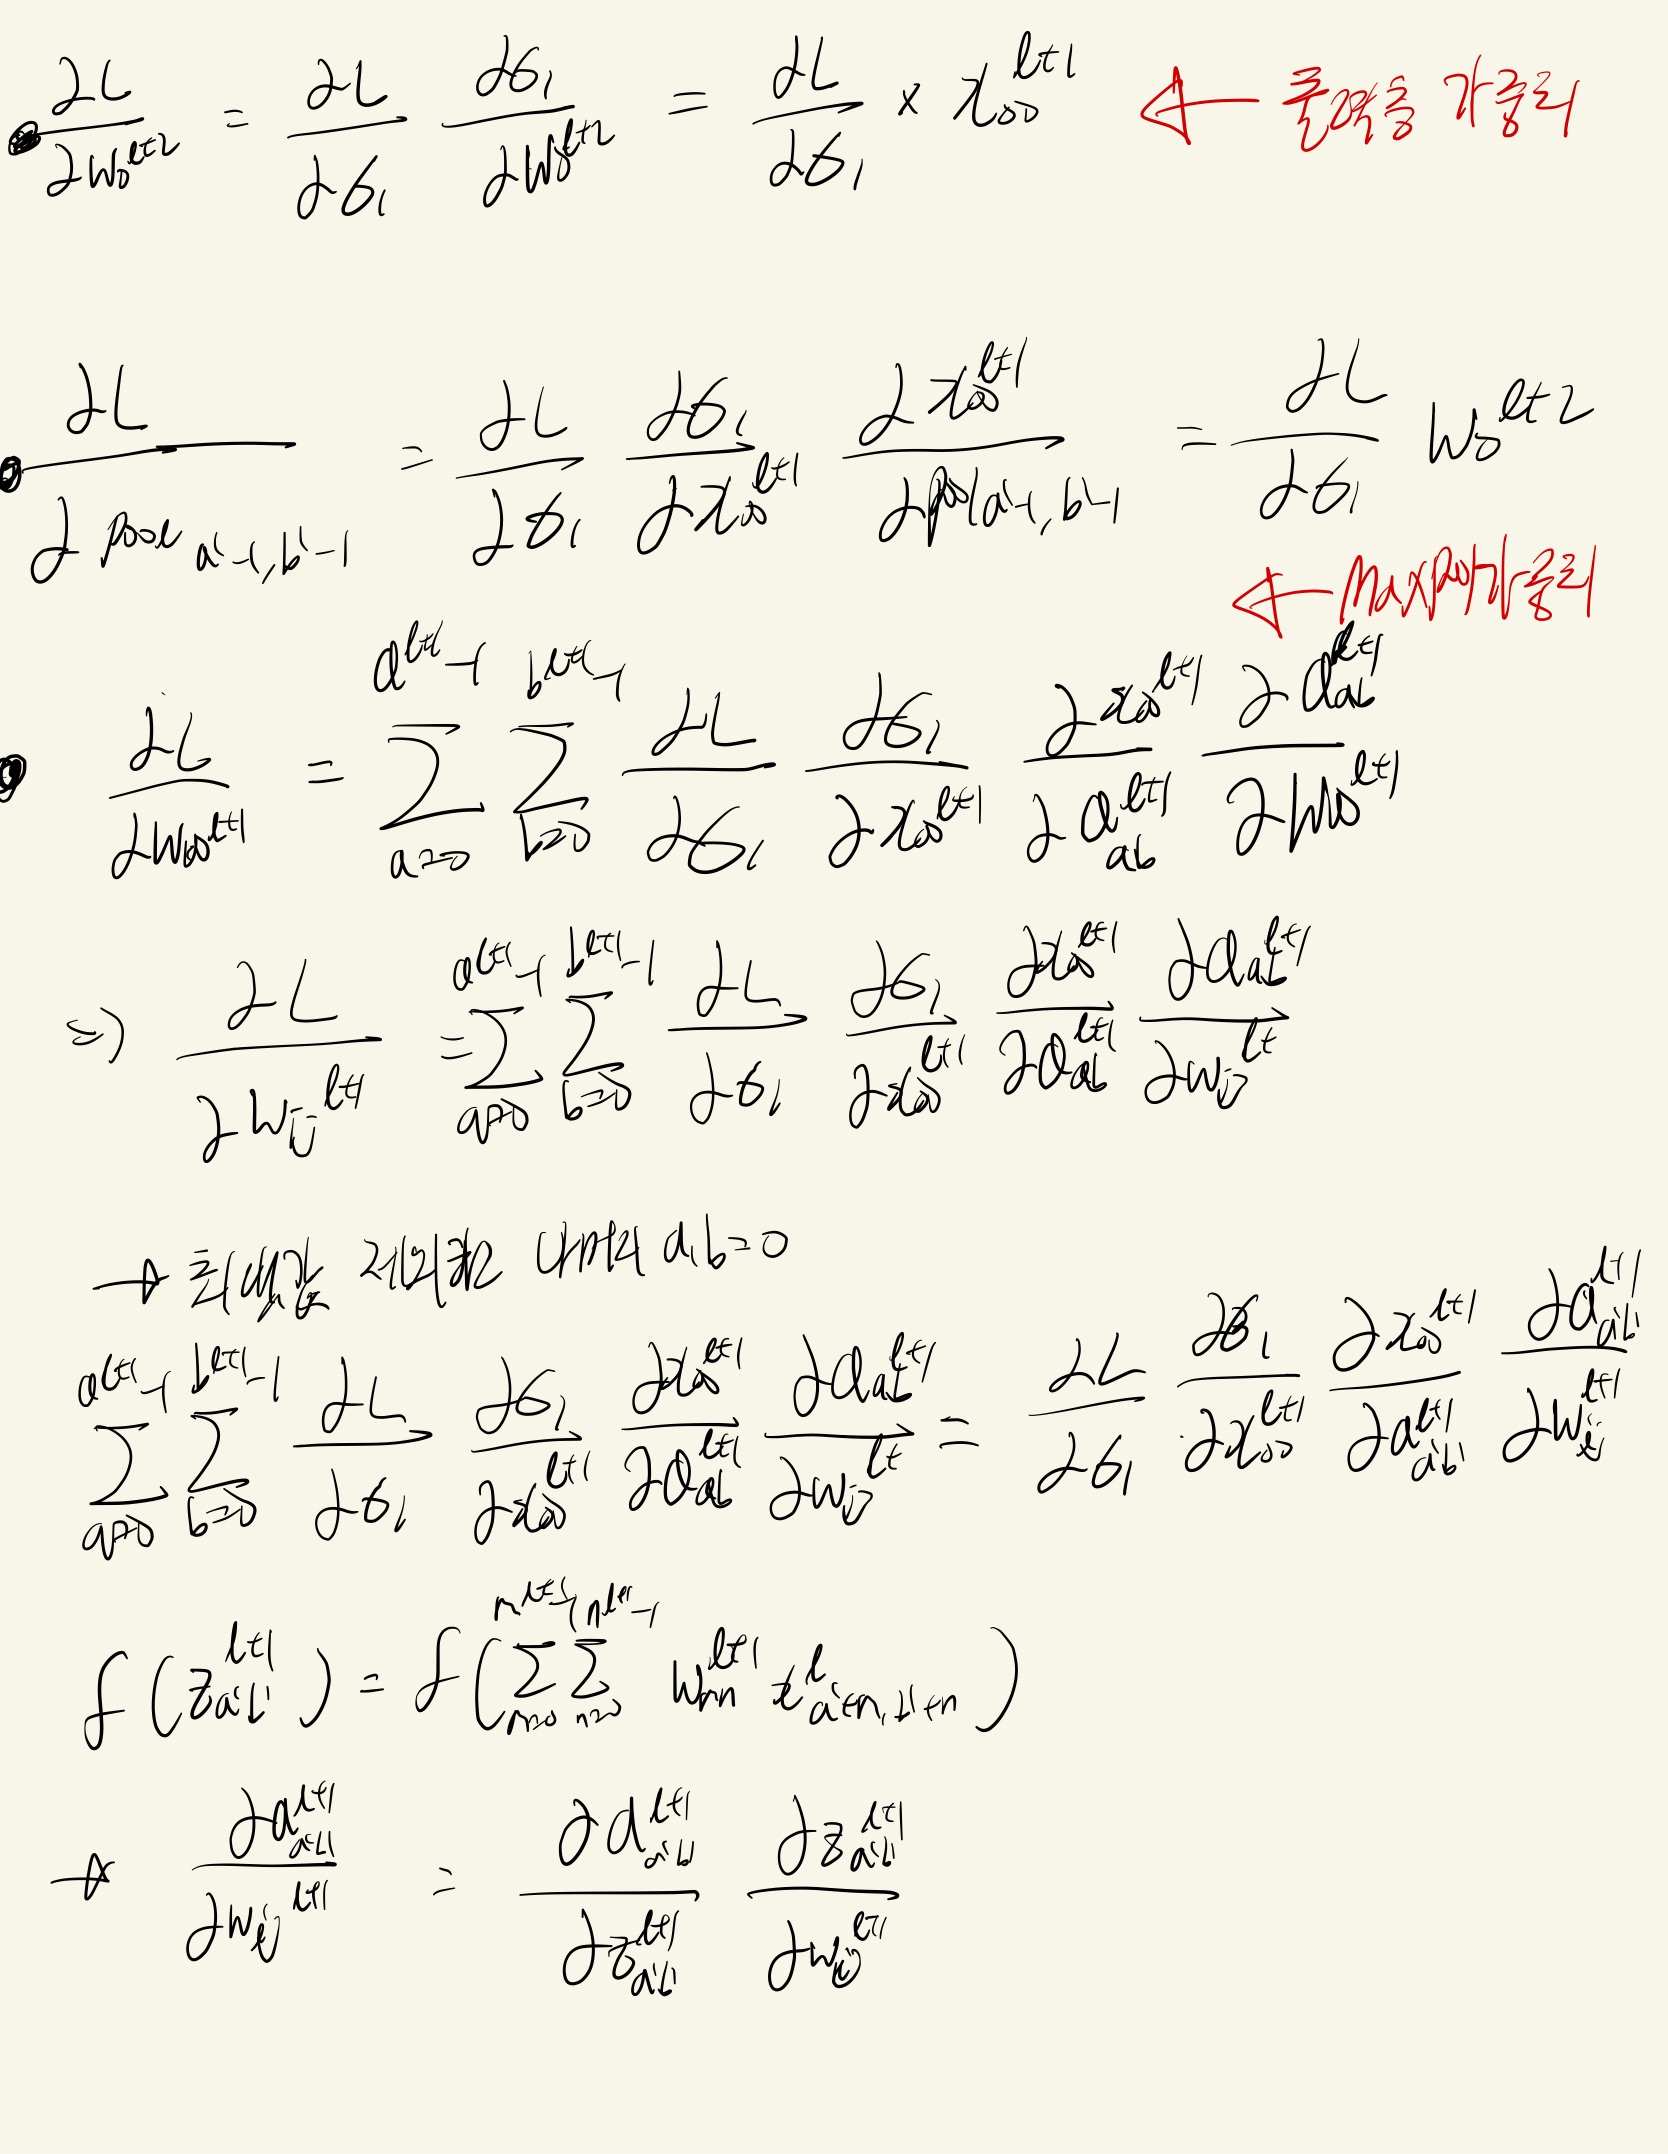 ∂L/∂w₀^{l+2} = ∂L/∂σ₁ ∂σ₁/∂w₀^{l+2} = ∂L/∂σ₁ × x₀₀^{l+1} ← 출력층 가중치
∂L/∂pool_{a'-1,b'-1} = ∂L/∂σ₁ ∂σ₁/∂x₀₀^{l+1} ∂x₀₀^{l+1}/∂pool_{a'-1,b'-1} = ∂L/∂σ₁ w₀^{l+2}
← Maxpool 가중치
∂L/∂w₀₀^{l+1} = Σ_{a=0}^{a^{l+1}-1} Σ_{b=0}^{b^{l+1}-1} ∂L/∂σ₁ ∂σ₁/∂x₀₀^{l+1} ∂x₀₀^{l+1}/∂a_{ab}^{l+1} ∂a_{ab}^{l+1}/∂w₀₀^{l+1}
⇒ ∂L/∂w_{ij}^{l+1} = Σ_{a=0}^{a^{l+1}-1} Σ_{b=0}^{b^{l+1}-1} ∂L/∂σ₁ ∂σ₁/∂x₀₀^{l+1} ∂x₀₀^{l+1}/∂a_{ab}^{l+1} ∂a_{ab}^{l+1}/∂w_{ij}^{l+}
→ 최댓값 제외한 나머지 a,b=0
Σ_{a=0}^{a^{l+1}-1} Σ_{b=0}^{b^{l+1}-1} ∂L/∂σ₁ ∂σ₁/∂x₀₀^{l+1} ∂x₀₀^{l+1}/∂a_{ab}^{l+1} ∂a_{ab}^{l+1}/∂w_{ij}^{l+} = ∂L/∂σ₁ ∂σ₁/∂x₀₀^{l+1} ∂x₀₀^{l+1}/∂a_{a'b'}^{l+1} ∂a_{a'b'}^{l+1}/∂w_{ij}^{l+1}
f(z_{a'b'}^{l+1}) = f(Σ_{m=0}^{m^{l+1}-1} Σ_{n=0}^{n^{l+1}-1} w_{mn}^{l+1} x_{a'+m,b'+n}^{l})
→ ∂a_{a'b'}^{l+1}/∂w_{ij}^{l+1} = ∂a_{a'b'}^{l+1}/∂z_{a'b'}^{l+1} ∂z_{a'b'}^{l+1}/∂w_{ij}^{l+1}